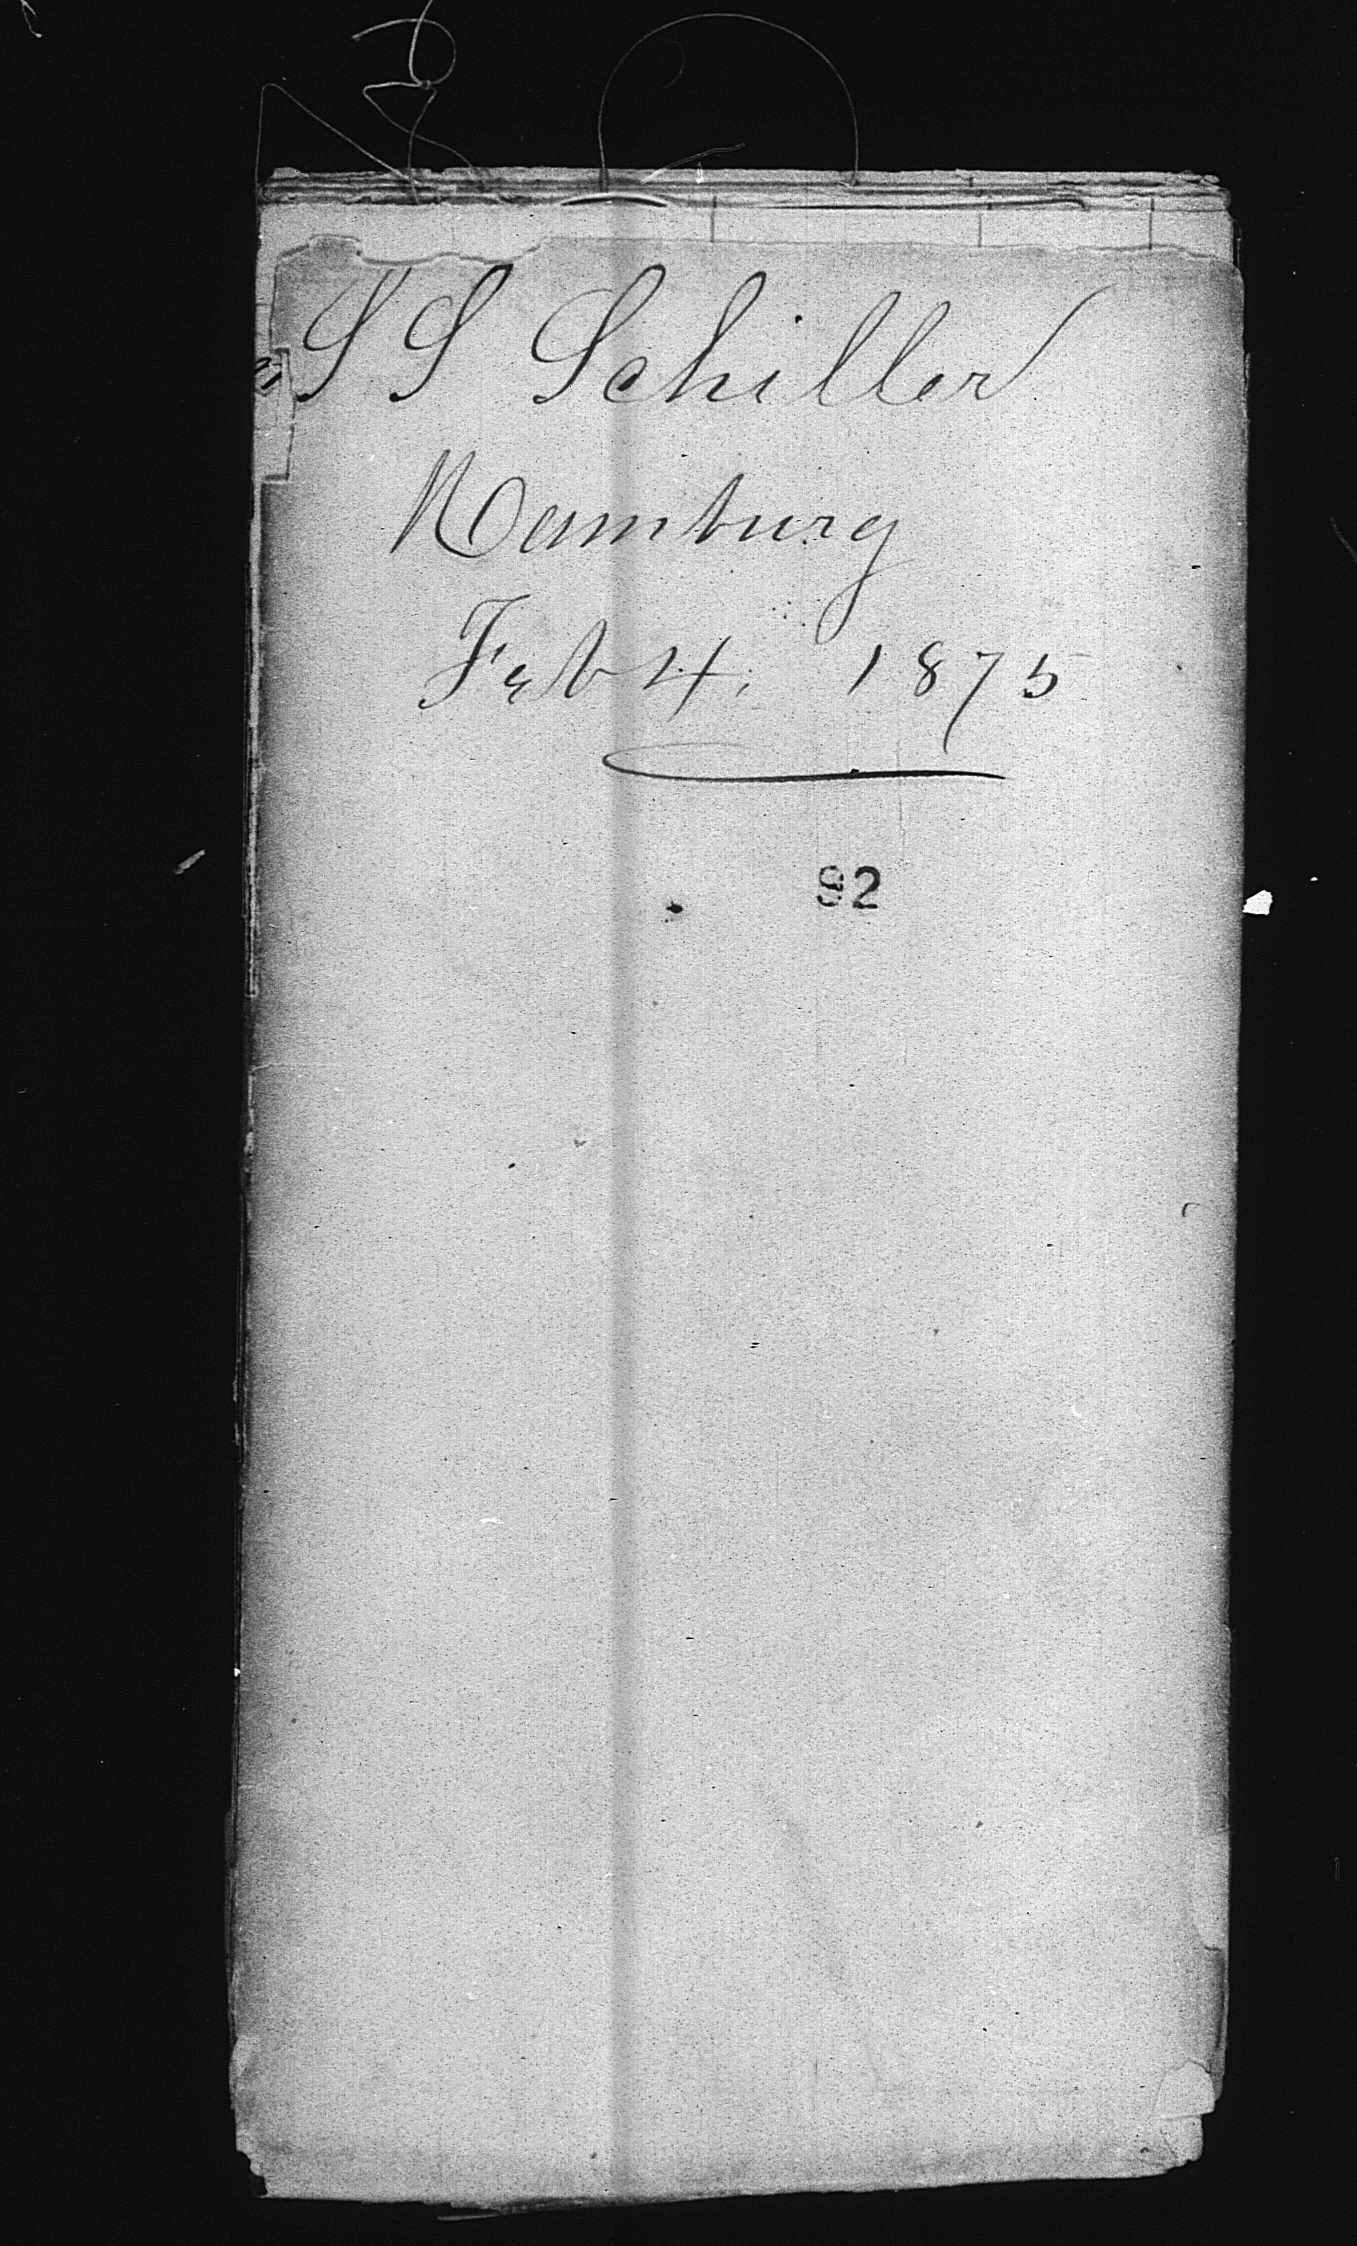 SS Schiller
Hamburg
Feb 4, 1875
92